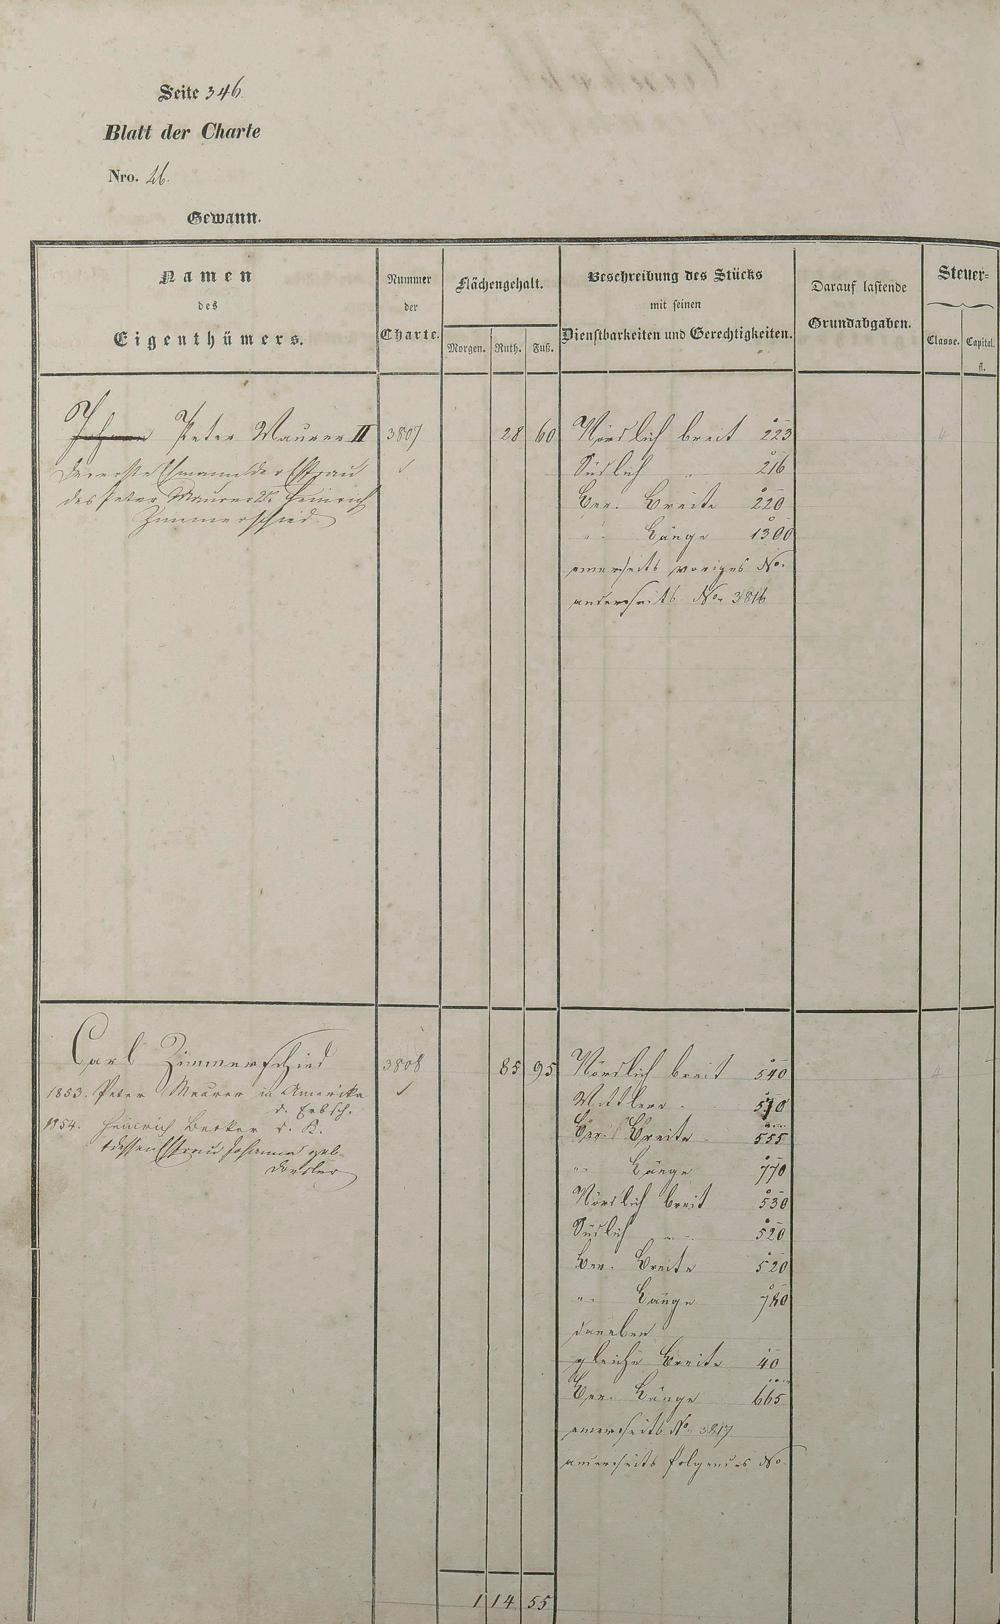 Seite 346.
Blatt der Charte
Nro. 26.
Gewann.
Namen
des
Eigenthümers.
Nummer
der
Charte.
Flächengehalt.
Morgen. Ruth. Fuß.
Beschreibung des Stücks
mit seinen
Dienstbarkeiten und Gerechtigkeiten.
Darauf lastende
Grundabgaben.
Steuer-
Classe. Capital.
fl.
Peter Maurer II 3807 28 60 Nördlich breit 223 4
Südlich " 216
des Peter Maurer Heinrich
Zimmerschied
Ber. Breite 220
" Länge 1300
einerseits voriges No.
anderseits No. 3816
Carl Zimmerschied 3808 85 95 Nördlich breit 540 4
1853. Peter Maurer in Amerika
d. Erbsch.
1854. Heinrich Becker d. K.
dessen Ehefrau Johanna geb.
Mittlere " 570
Ber. Breite 555
" Länge 770
Nördlich breit 530
Südlich " 520
Ber. Breite 520
" Länge 780
daneben
gleiche Breite 40
Ber. Länge 665
einerseits No. 3817
anderseits folgendes No.
1 14 55